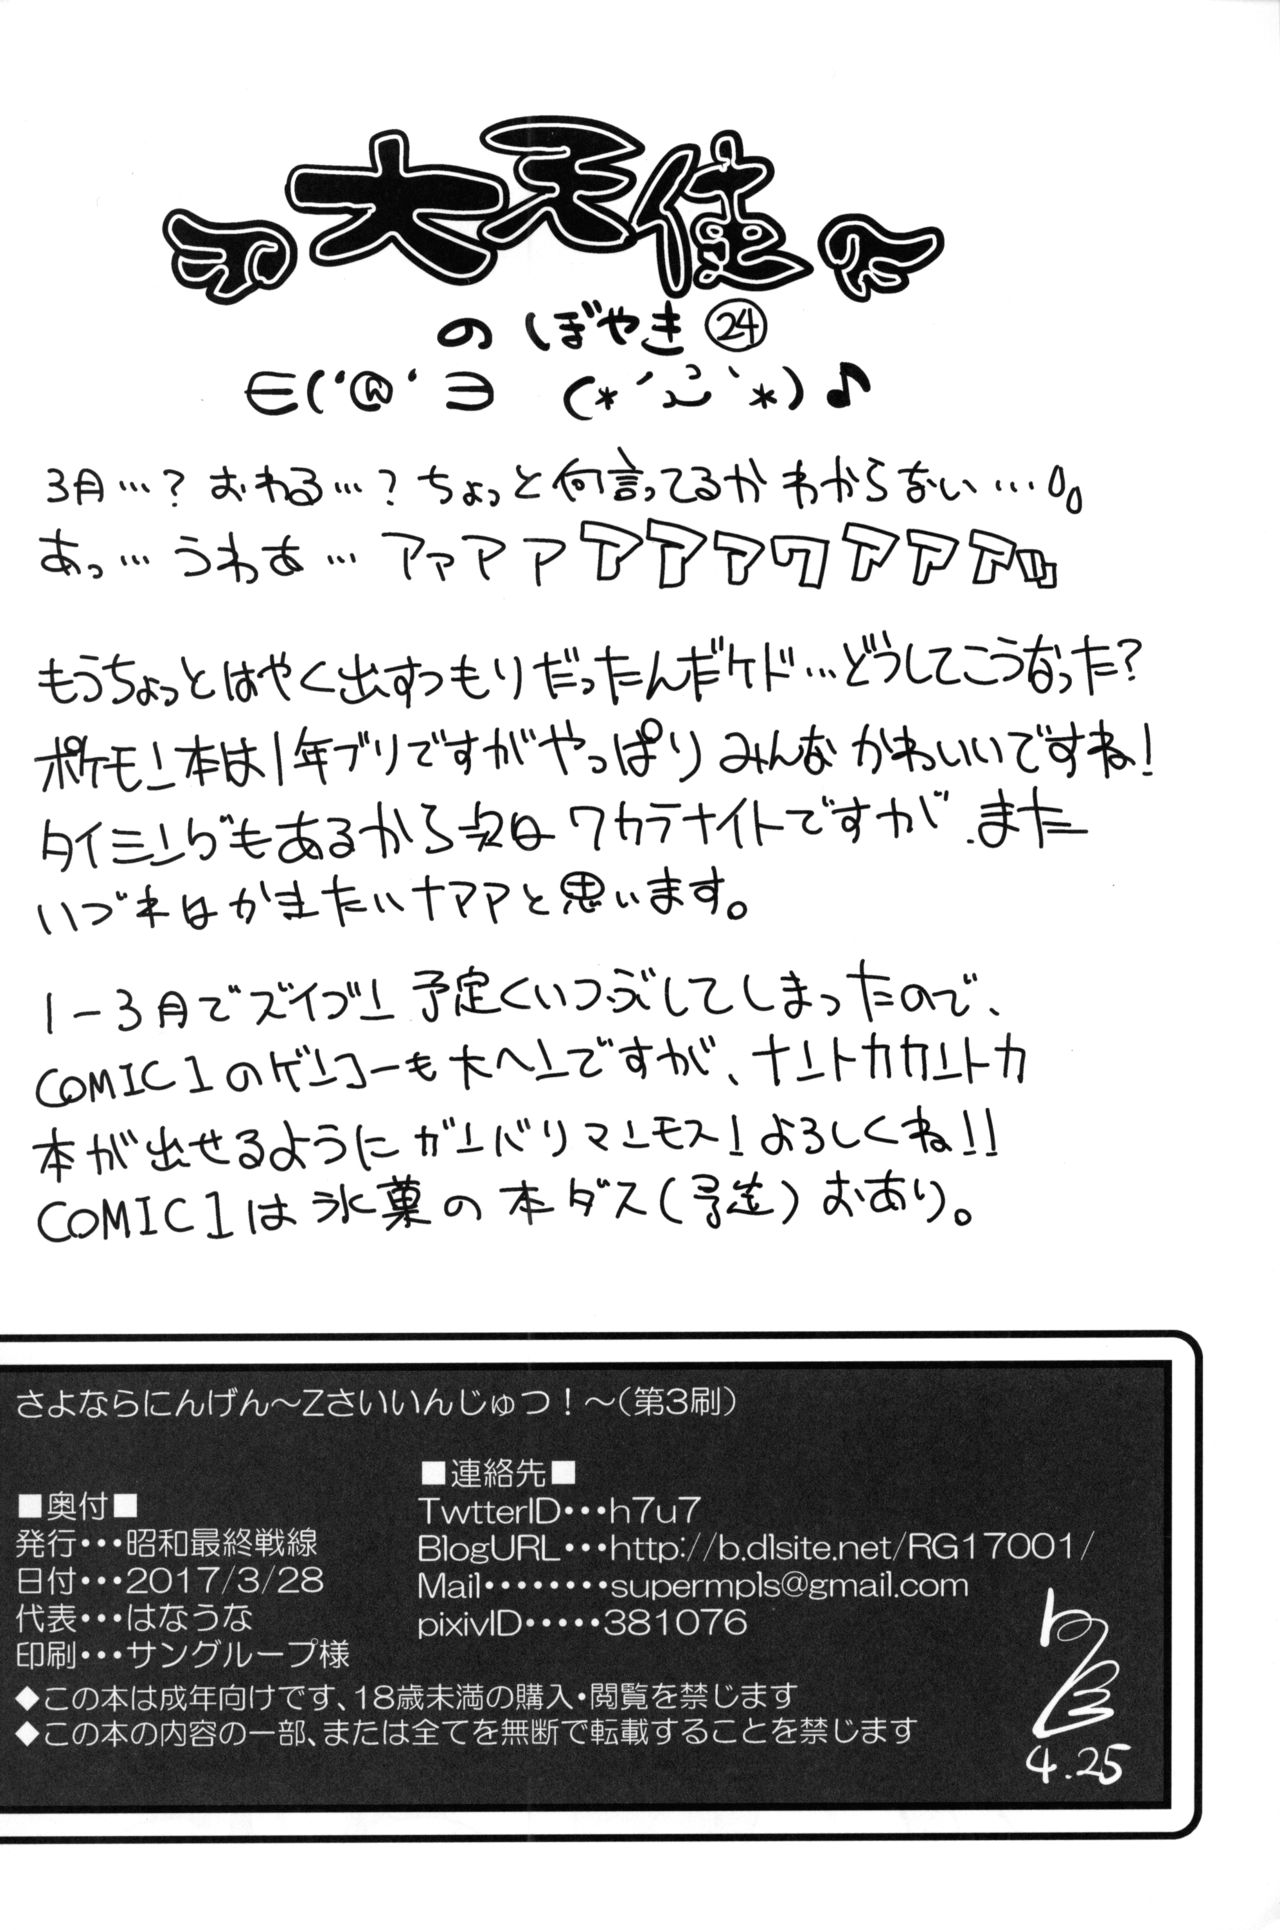 大天使
のぼやき㉔
∈('@'∋ (*´ω`*)♪
3月…?おわる…?ちょっと何言ってるかわからない…。
あっ…うわあ…アァアァアアァワアアア
もうちょっとはやく出すつもりだったんだケド…どうしてこうなった?
ポケモン本は1年ブリですがやっぱりみんなかわいいですね!
タイミングもあるから次はワカラナイトですが、また
いづれはかきたいナァァと思います。
1-3月でズイブン予定くいつぶしてしまったので、
COMIC1のゲンコーも大ヘンですが、ナントカカントカ
本が出せるようにガンバリマンモス!よろしくね!!
COMIC1は氷菓の本ダス(予定)おあり。
さよならにんげん～Zさいいんじゅつ!～(第3刷)
■奥付■
発行・・・昭和最終戦線
日付・・・2017/3/28
代表・・・はなうな
印刷・・・サングループ様
■連絡先■
TwtterID・・・h7u7
BlogURL・・・http://b.dlsite.net/RG17001/
Mail・・・・・・・・supermpls@gmail.com
pixivID・・・・・381076
◆この本は成年向けです、18歳未満の購入・閲覧を禁じます
◆この本の内容の一部、または全てを無断で転載することを禁じます
4.25